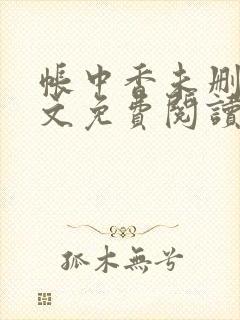 帳中香未刪
文免費閱讀
孤木無兮